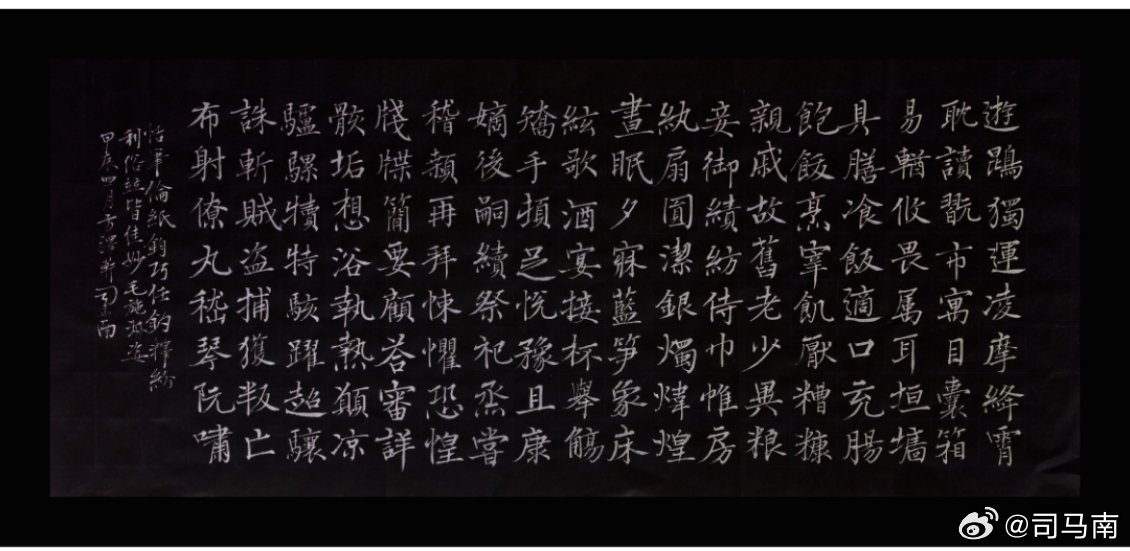 遊鵾獨運凌摩絳霄
耽讀翫市寓目囊箱
易輶攸畏属耳垣墻
具膳飡飯適口充腸
飽飫烹宰飢厭糟糠
親戚故舊老少異粮
妾御績紡侍巾帷房
紈扇圎潔銀燭煒煌
晝眠夕寐藍笋象床
絃歌酒宴接杯舉觴
矯手頓足悅豫且康
嫡後嗣續祭祀烝嘗
稽顙再拜悚懼恐惶
牋牒簡要顧荅審詳
骸垢想浴執熱願凉
驢騾犢特駭躍超驤
誅斬賊盗捕獲叛亡
布射僚丸嵇琴阮嘯
恬筆倫紙鈞巧任釣釋紛
利俗竝皆佳妙毛施淑姿
甲辰四月
@司马南